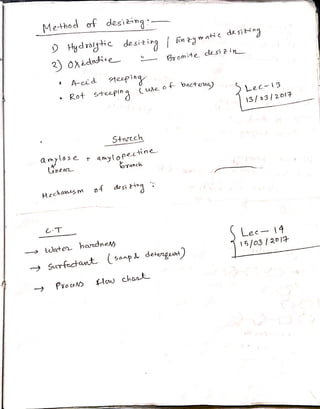 Method of desizing :—
1) Hydrolytic desizing / Enzymatic desizing
2) Oxidative :— Bromite desizin
• Acid steeping
• Rot steeping (use of bacteria)
Lec-13
13/03/2017
Starch
amylose + amylopectine
linear branch
Mechanism of desizing :
C.T
→ Water hardness
→ Surfactant (soap & detergent)
→ Process flow chart
Lec-14
15/03/2017